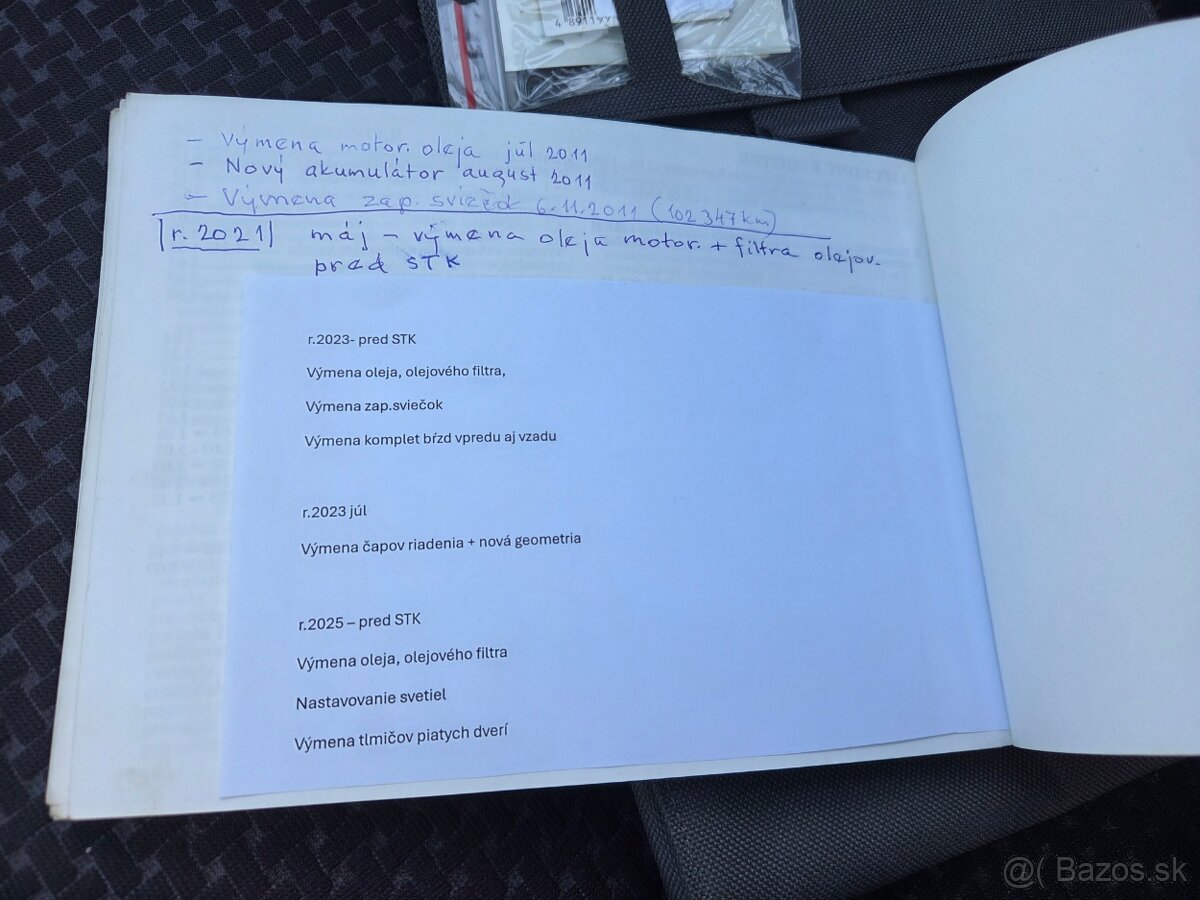 - Výmena motor. oleja júl 2011
- Nový akumulátor august 2011
- Výmena zap. sviečok 6.11.2011 (102 347 km)
r. 2021 máj - výmena oleja motor. + filtra olejov.
pred STK
r.2023- pred STK
Výmena oleja, olejového filtra,
Výmena zap.sviečok
Výmena komplet bŕzd vpredu aj vzadu
r.2023 júl
Výmena čapov riadenia + nová geometria
r.2025 – pred STK
Výmena oleja, olejového filtra
Nastavovanie svetiel
Výmena tlmičov piatych dverí
@( Bazos.sk